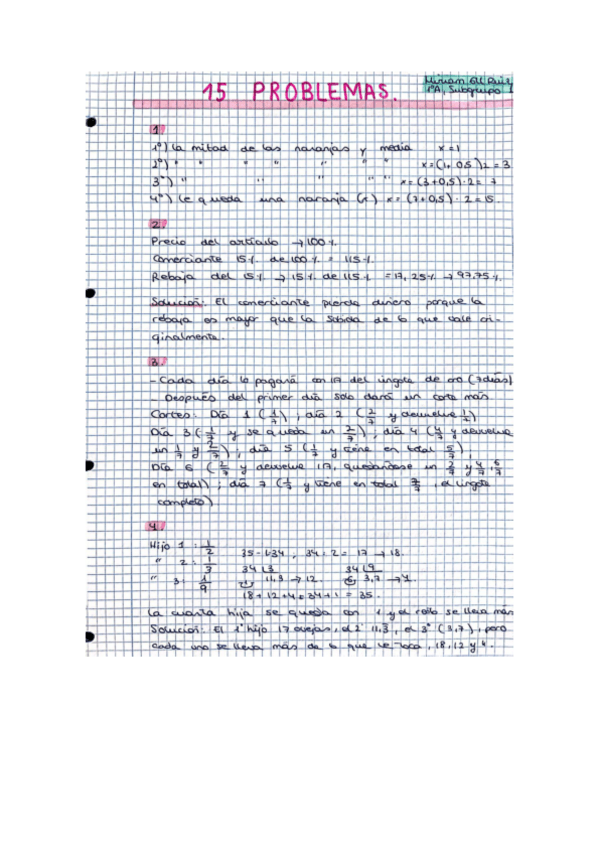 15 PROBLEMAS.
Miriam Gil Ruiz
1ºA, Subgrupo 1
1.
1º) La mitad de las naranjas y media x=1
2º) " " " " " " x=(1+0,5)2=3
3º) " " " " x=(3+0,5)·2=7
4º) Le queda una naranja (x) x=(7+0,5)·2=15.
2.
Precio del artículo → 100%
Comerciante 15% de 100% = 115%
Rebaja del 15% → 15% de 115% = 17,25% → 97,75%
Solución: El comerciante pierde dinero porque la
rebaja es mayor que la subida de lo que vale ori-
ginalmente.
3.
- Cada día le pagará con 1/7 del lingote de oro (7 días)
- Después del primer día solo dará un corte más
Cortes: Día 1 (1/7), día 2 (2/7 y devuelve 1/7)
Día 3 (1/7 y se queda un 2/7), día 4 (4/7 y devuelve
un 1/7 y 2/7), día 5 (1/7 y tiene en total 5/7),
Día 6 (2/7 y devuelve 1/7, quedándose un 2/7 y 4/7, 6/7
en total); día 7 (1/7 y tiene en total 7/7, el lingote
completo)
4.
Hijo 1: 1/2 35-1=34, 34:2= 17 → 18.
" 2: 1/3 34 ⌊3 34 ⌊9
" 3: 1/9 11,3 → 12. 3,7 → 4.
18+12+4=34+1=35.
La cuarta hija se queda con 1 y el resto se lleva más
Solución: El 1º hijo 17 ovejas, el 2º 11,3, el 3º (3,7), pero
cada uno se lleva más de lo que le toca, 18, 12 y 4.